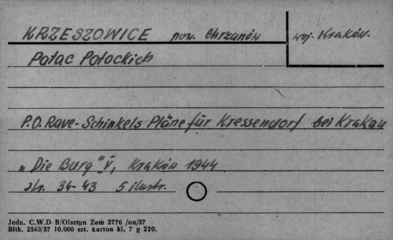 KRZESZOWICE pow. Chrzanów woj. Kraków.
Pałac Potockich
P.O. Rave - Schinkels Pläne für Kressendorf bei Krakau
„Die Burg" V, Kraków 1944
str. 34-43 5 ilustr.
Jedn. C.W.D B/Olsztyn Zam 2776 /on/57
Bltk. 2563/57 10.000 szt. karton kl. 7 g 220.